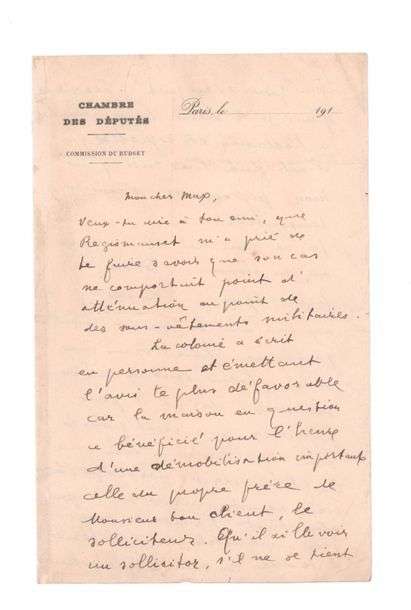 CHAMBRE
DES DÉPUTÉS
COMMISSION DU BUDGET
Paris, le 191
Mon cher Max,
Veux-tu dire à ton ami, que
m'a prié de
te faire savoir que son cas
ne comportait point d'
atténuation au point de
des sous-vêtements militaires.
a écrit
en personne et émettant
l'avis le plus défavorable
car la maison en question
a bénéficié pour l'heure
d'une démobilisation importante
celle du propre frère de
Monsieur ton client, le
solliciteur. Qu'il aille voir
un sollicitor, s'il ne se tient